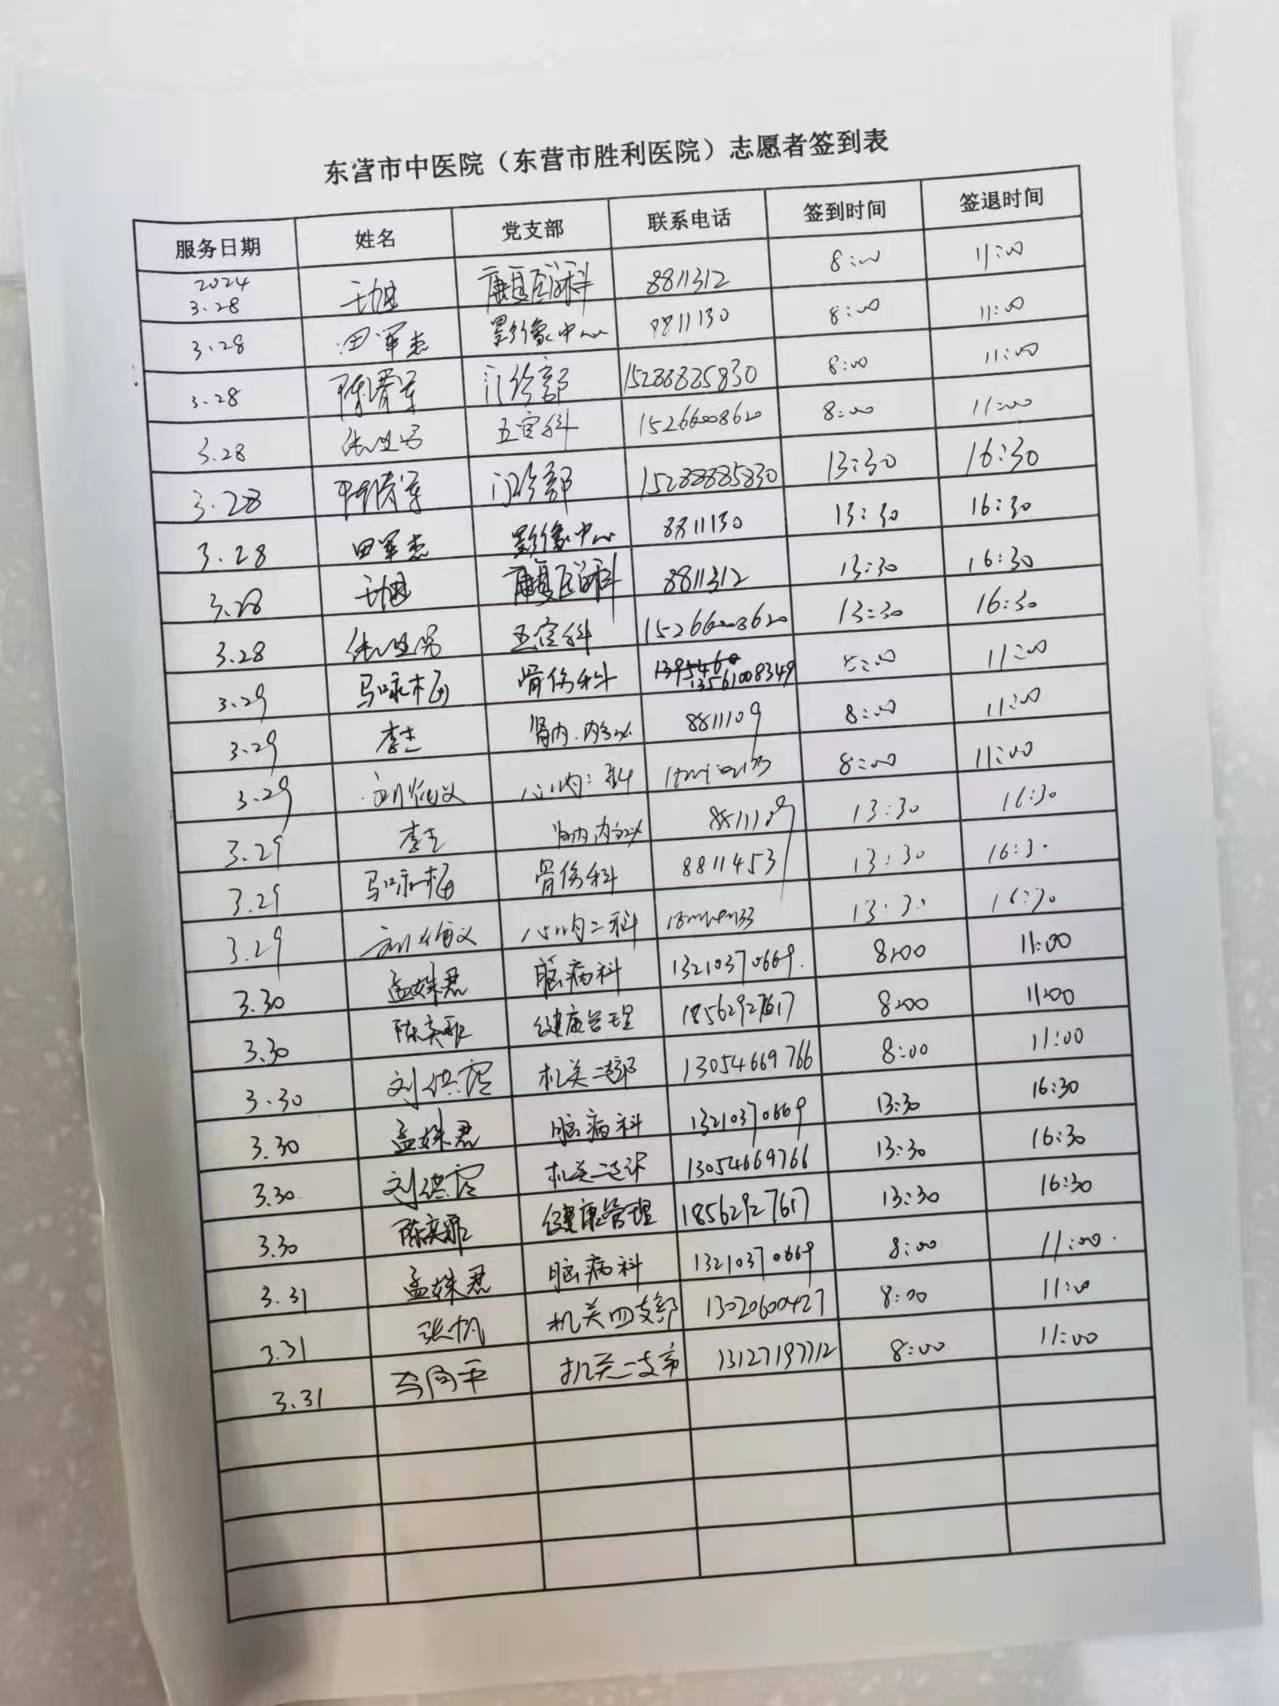 东营市中医院（东营市胜利医院）志愿者签到表
服务日期 姓名 党支部 联系电话 签到时间 签退时间
2024
3.28 康复医学科 8811312 8:00 11:00
3.28 田军杰 影像中心 8811130 8:00 11:00
3.28 门诊部 15288885830 8:00 11:00
3.28 五官科 15266008620 8:00 11:00
3.28 门诊部 15288885830 13:30 16:30
3.28 田军杰 影像中心 8811130 13:30 16:30
3.28 康复医学科 8811312 13:30 16:30
3.28 五官科 15266008620 13:30 16:30
3.29 马咏梅 骨伤科 13561008349 8:00 11:00
3.29 8811109 8:00 11:00
3.29 心内二科 8:00 11:00
3.29 8811109 13:30 16:30
3.29 马咏梅 骨伤科 8811453 13:30 16:30
3.29 心内二科 13:30 16:30
3.30 孟姝君 脑病科 13210370669 8:00 11:00
3.30 陈奕菲 健康管理 18562927617 8:00 11:00
3.30 刘洪 机关二支部 13054669766 8:00 11:00
3.30 孟姝君 脑病科 13210370669 13:30 16:30
3.30 刘洪 机关二支部 13054669766 13:30 16:30
3.30 陈奕菲 健康管理 18562927617 13:30 16:30
3.31 孟姝君 脑病科 13210370669 8:00 11:00
3.31 张帆 机关四支部 13020600427 8:00 11:00
3.31 机关一支部 13127197712 8:00 11:00